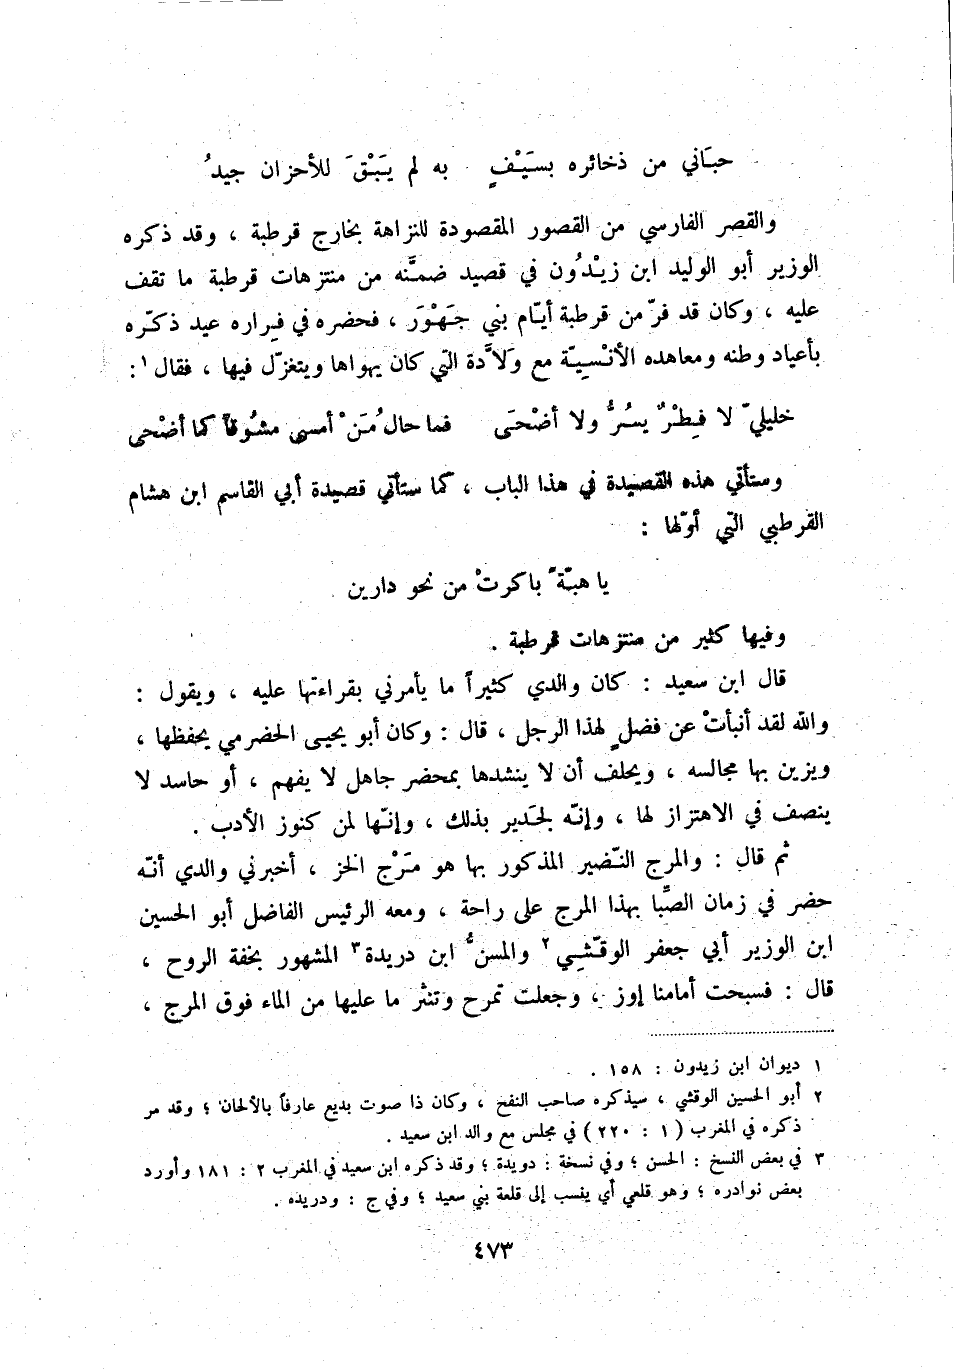 حبَاني من ذخائره بسَيْفٍ به لم يَبْقَ للأحزان جيدُ
والقصر الفارسي من القصور المقصودة للنزاهة بخارج قرطبة ، وقد ذكره
الوزير أبو الوليد ابن زيْدُون في قصيد ضمَّنه من منتزهات قرطبة ما تقف
عليه ، وكان قد فرّ من قرطبة أيّام بني جَهْوَر ، فحضره في فِراره عيد ذكّره
بأعياد وطنه ومعاهده الأنْسِيّة مع وَلاَّدة التي كان يهواها ويتغزّل فيها ، فقال ١ :
خليليّ لا فِطْرٌ يسُرُّ ولا أضْحَى فما حالُ مَنْ أمسى مشُوقاً كما أضْحى
وستأتي هذه القصيدة في هذا الباب ، كما ستأتي قصيدة أبي القاسم ابن هشام
القرطبي التي أوّلها :
يا هبّةً باكرتْ من نحو دارين
وفيها كثير من منتزهات قرطبة .
قال ابن سعيد : كان والدي كثيراً ما يأمرني بقراءتها عليه ، ويقول :
والله لقد أنبأتْ عن فضلٍ لهذا الرجل ، قال : وكان أبو يحيى الحضرمي يحفظها ،
ويزين بها مجالسه ، ويحلف أن لا ينشدها بمحضر جاهل لا يفهم ، أو حاسد لا
ينصف في الاهتزاز لها ، وإنّه لجَدير بذلك ، وإنّها لمن كنوز الأدب .
ثم قال : والمرج النّضير المذكور بها هو مَرْج الخز ، أخبرني والدي أنّه
حضر في زمان الصَّبا بهذا المرج على راحة ، ومعه الرئيس الفاضل أبو الحسين
ابن الوزير أبي جعفر الوقّشِي ٢ والمسنُّ ابن دريدة ٣ المشهور بخفة الروح ،
قال : فسبحت أمامنا إوز ، وجعلت تمرح وتنثر ما عليها من الماء فوق المرج ،
١ ديوان ابن زيدون : ١٥٨ .
٢ أبو الحسين الوقشي ، سيذكره صاحب النفح ، وكان ذا صوت بديع عارفاً بالألحان ؛ وقد مر
ذكره في المغرب ( ١ : ٢٢٠ ) في مجلس مع والد ابن سعيد .
٣ في بعض النسخ : الحسن ؛ وفي نسخة : دويدة ؛ وقد ذكره ابن سعيد في المغرب ٢ : ١٨١ وأورد
بعض نوادره ؛ وهو قلعي أي ينسب إلى قلعة بني سعيد ؛ وفي ج : ودريده .
٤٧٣